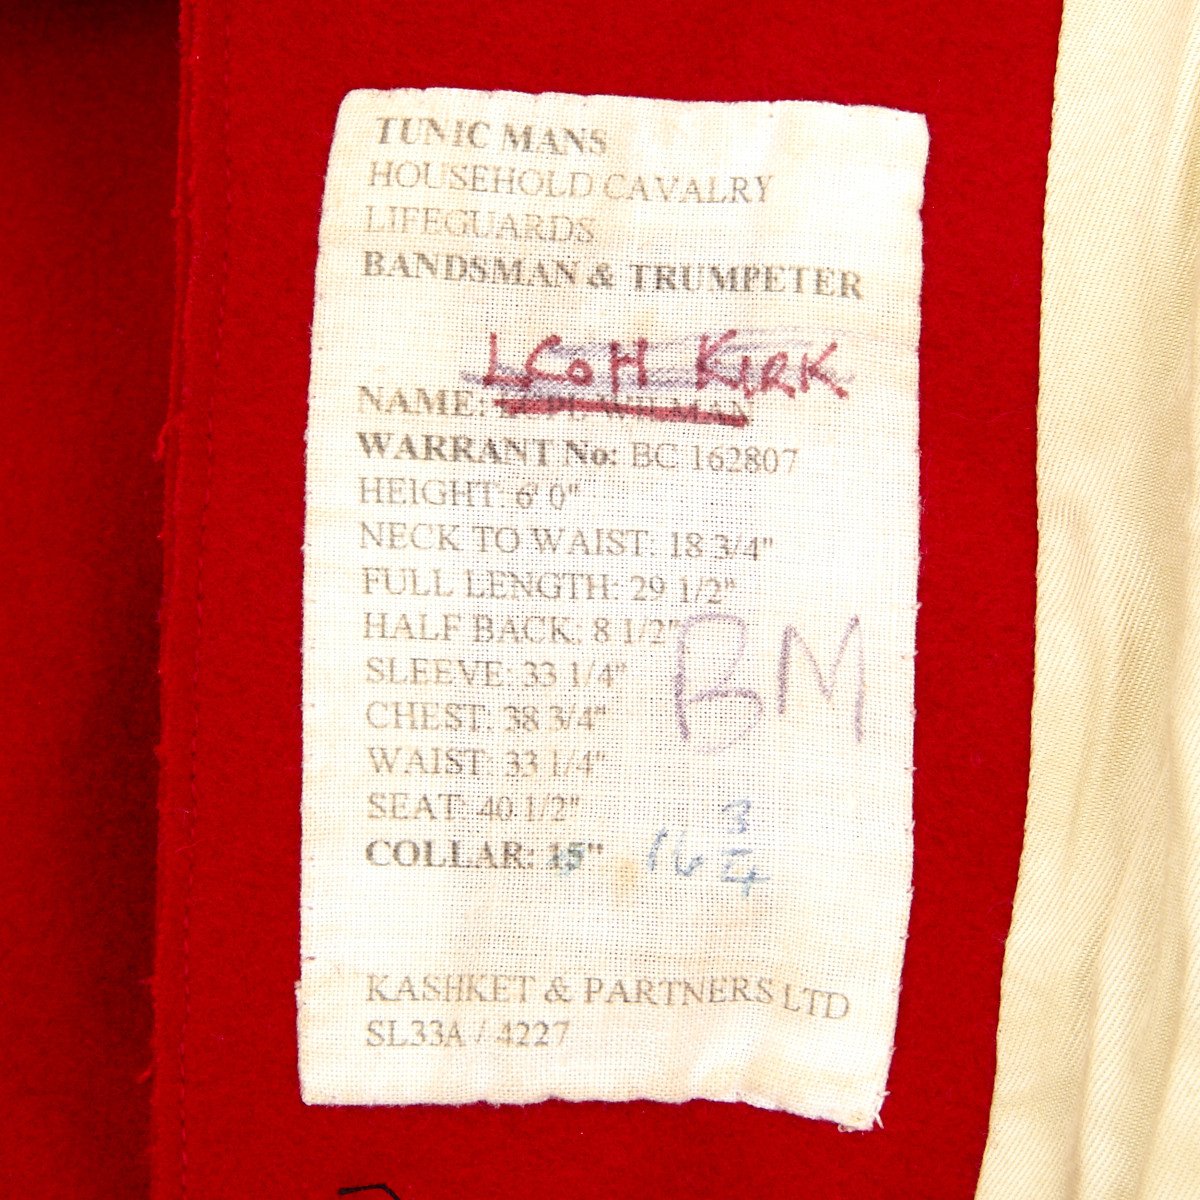 TUNIC MANS
HOUSEHOLD CAVALRY
LIFEGUARDS
BANDSMAN & TRUMPETER
LCOH KIRK
NAME:
WARRANT No: BC 162807
HEIGHT: 6' 0"
NECK TO WAIST: 18 3/4"
FULL LENGTH: 29 1/2"
HALF BACK: 8 1/2"
SLEEVE: 33 1/4"
BM
CHEST: 38 3/4"
WAIST: 33 1/4"
SEAT: 40 1/2"
COLLAR: 15" 16 3/4
KASHKET & PARTNERS LTD
SL33A / 4227